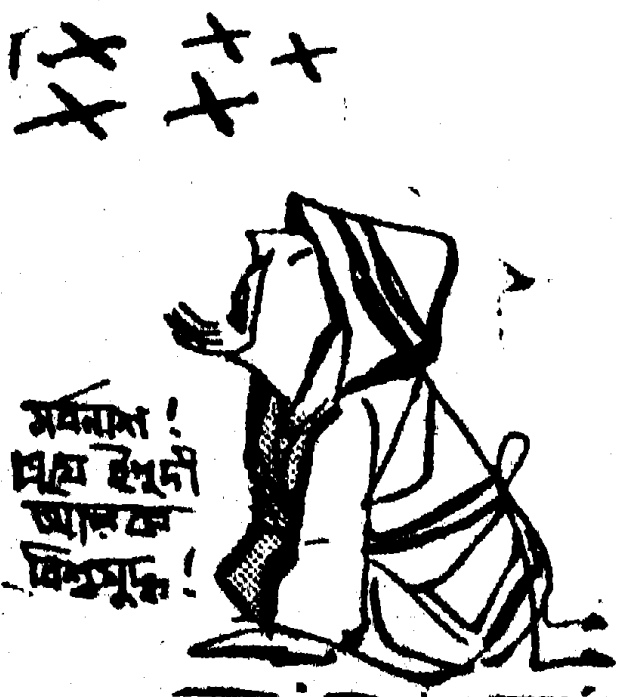 সর্বনাশ !
এযে ইহুদী
আরব
বিশ্বযুদ্ধ !